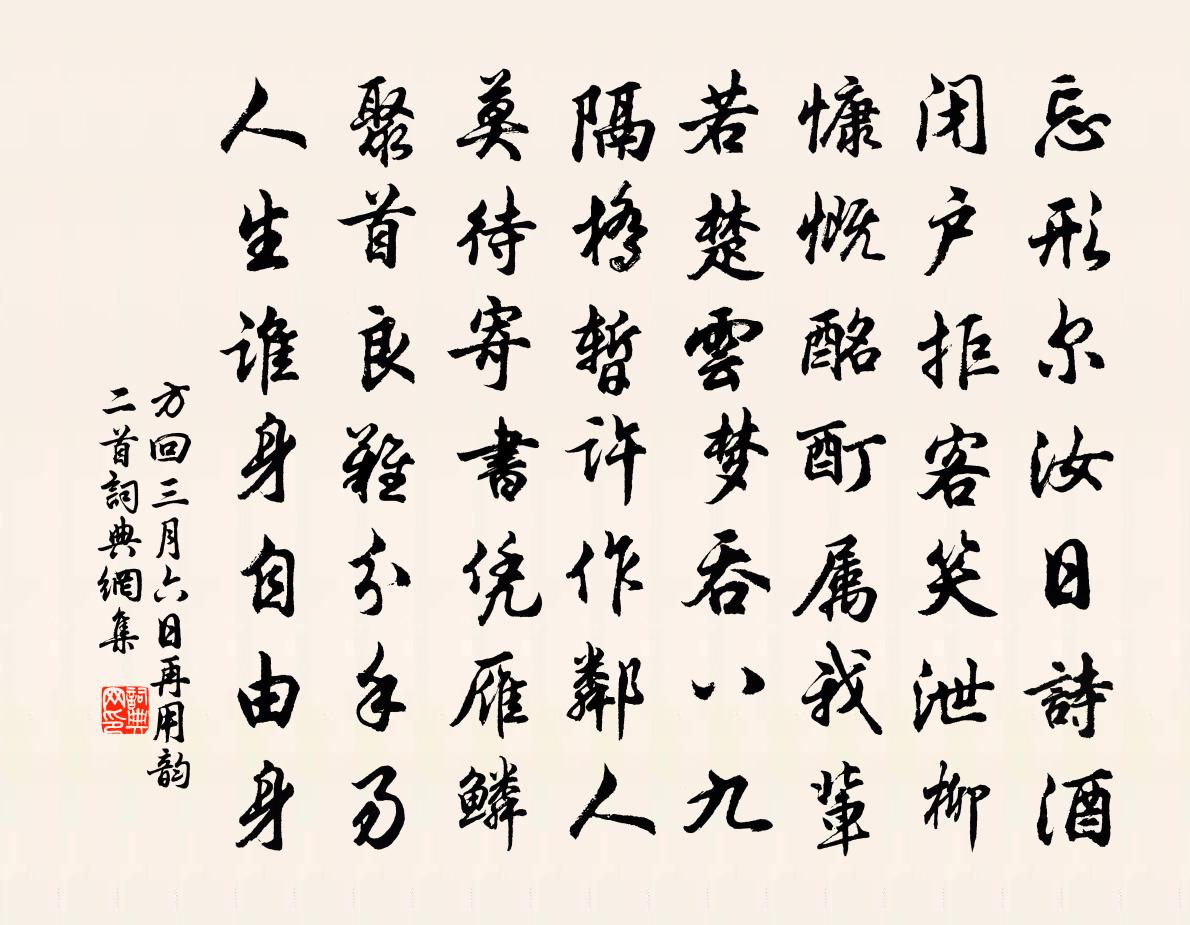 忘形尔汝日詩酒
闭户拒客笑泄柳
慷慨酩酊属我輩
若楚雲梦吞八九
隔橋暫許作鄰人
莫待寄書凭雁鱗
聚首良難分手易
人生谁身自由身
方回三月六日再用韵
二首詞典網集
詞典
网印